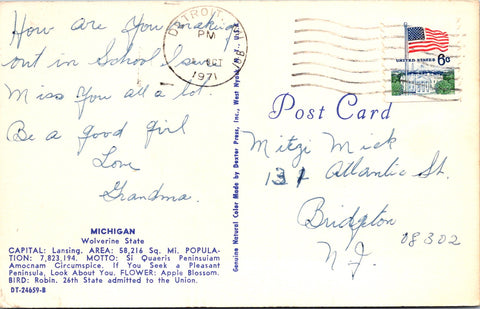 How are You making
out in School I sure
Miss You all a lot.
Be a good girl
Love
Grandma.
MICHIGAN
Wolverine State
CAPITAL: Lansing. AREA: 58,216 Sq. Mi. POPULA-
TION: 7,823,194. MOTTO: Si Quaeris Peninsulam
Amoenam Circumspice. If You Seek a Pleasant
Peninsula, Look About You. FLOWER: Apple Blossom.
BIRD: Robin. 26th State admitted to the Union.
DT-24659-B
Genuine Natural Color Made by Dexter Press, Inc., West Nyack, N. Y.
DETROIT
PM
OCT
1971
UNITED STATES
6c
Post Card
Mitzi Mick
131 Atlantic St.
Bridgeton
N.J. 08302